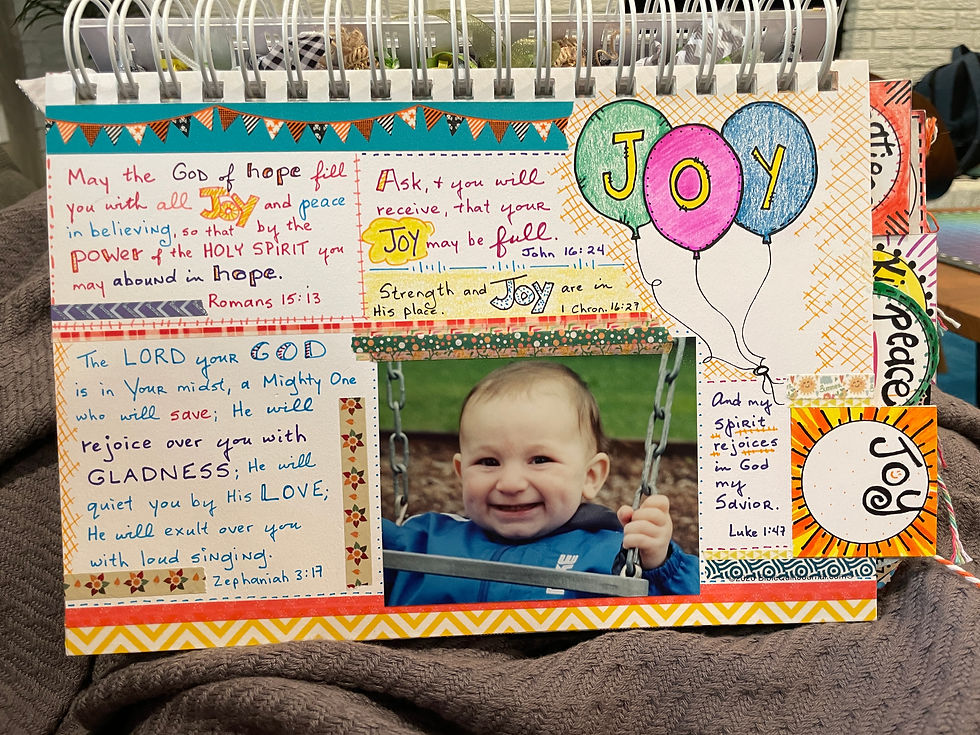 May the GOD of hope fill
you with all JOY and peace
in believing, so that by the
power of the HOLY SPIRIT you
may abound in hope.
Romans 15:13
Ask, + you will
receive, that your
JOY may be full.
John 16:24
Strength and JOY are in
His place. 1 Chron. 16:27
JOY
The LORD your GOD
is in Your midst, a Mighty One
who will save; He will
rejoice over you with
GLADNESS; He will
quiet you by His LOVE;
He will exult over you
with loud singing.
Zephaniah 3:17
And my
spirit
rejoices
in God
my
Savior.
Luke 1:47
Joy
peace